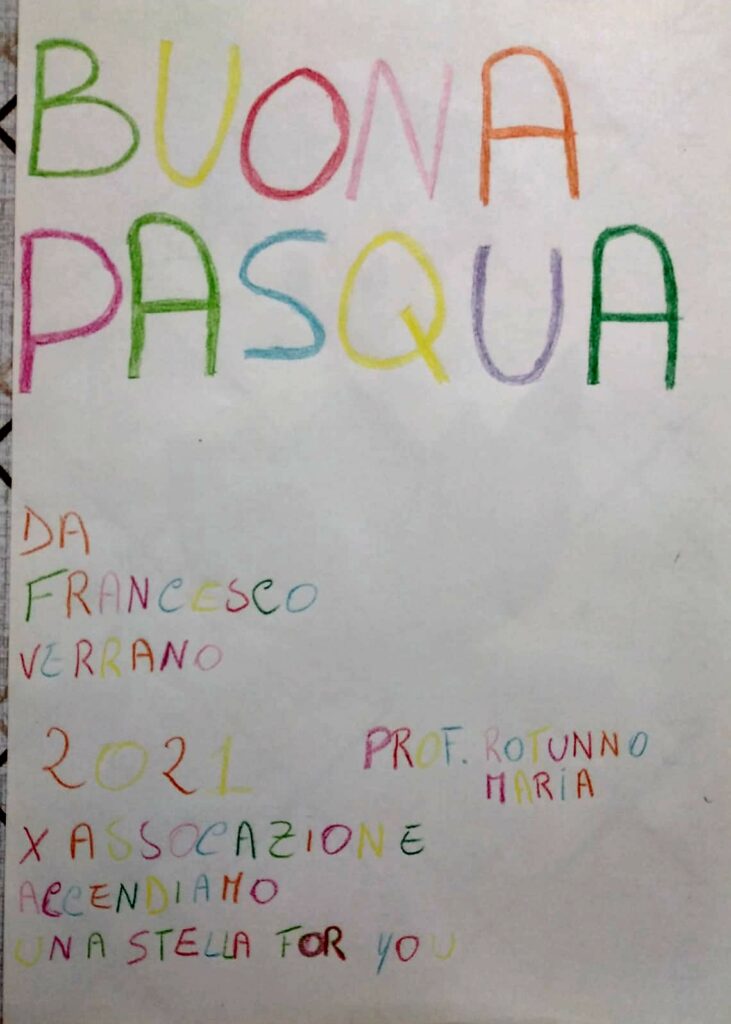 BUONA
PASQUA
DA
FRANCESCO
VERRANO
2021
PROF. ROTUNNO
MARIA
X ASSOCAZIONE
ACCENDIAMO
UNA STELLA FOR YOU